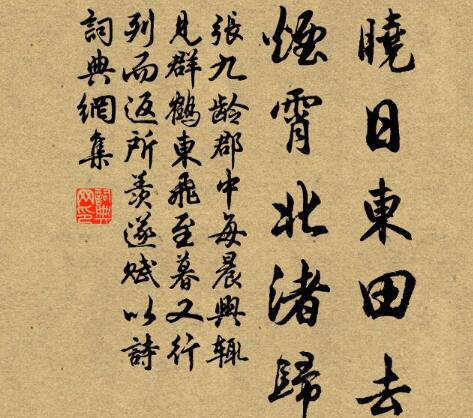 曉日東田去
煙霄北渚歸
張九龄郡中每晨興輒
見群鶴東飛至暮又行
列而返所羨遂賦以詩
詞典網集
詞典
网印